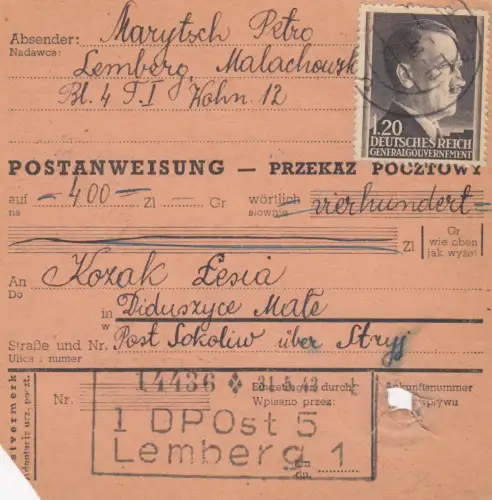 Absender: Marytsch Petro
Nadawca:
Lemberg, Malachowsk
Bl. 4 T. I Wohn. 12
1.20
DEUTSCHES REICH
GENERALGOUVERNEMENT
POSTANWEISUNG — PRZEKAZ POCZTOWY
auf — 400 — Zł — Gr wörtlich vierhundert
na słownie
Zł Gr
wie oben
jak wyżej
An Kozak Lesia
Do
in Diduszyce Małe
w
Straße und Nr. Post Sokoliw über Stryj
Ulica i numer
14436 31.5.43
Eingetragen durch: Ankunftsnummer
Nr. Wpisano przez:
1 DPOst 5
Lemberg 1
am
dn.